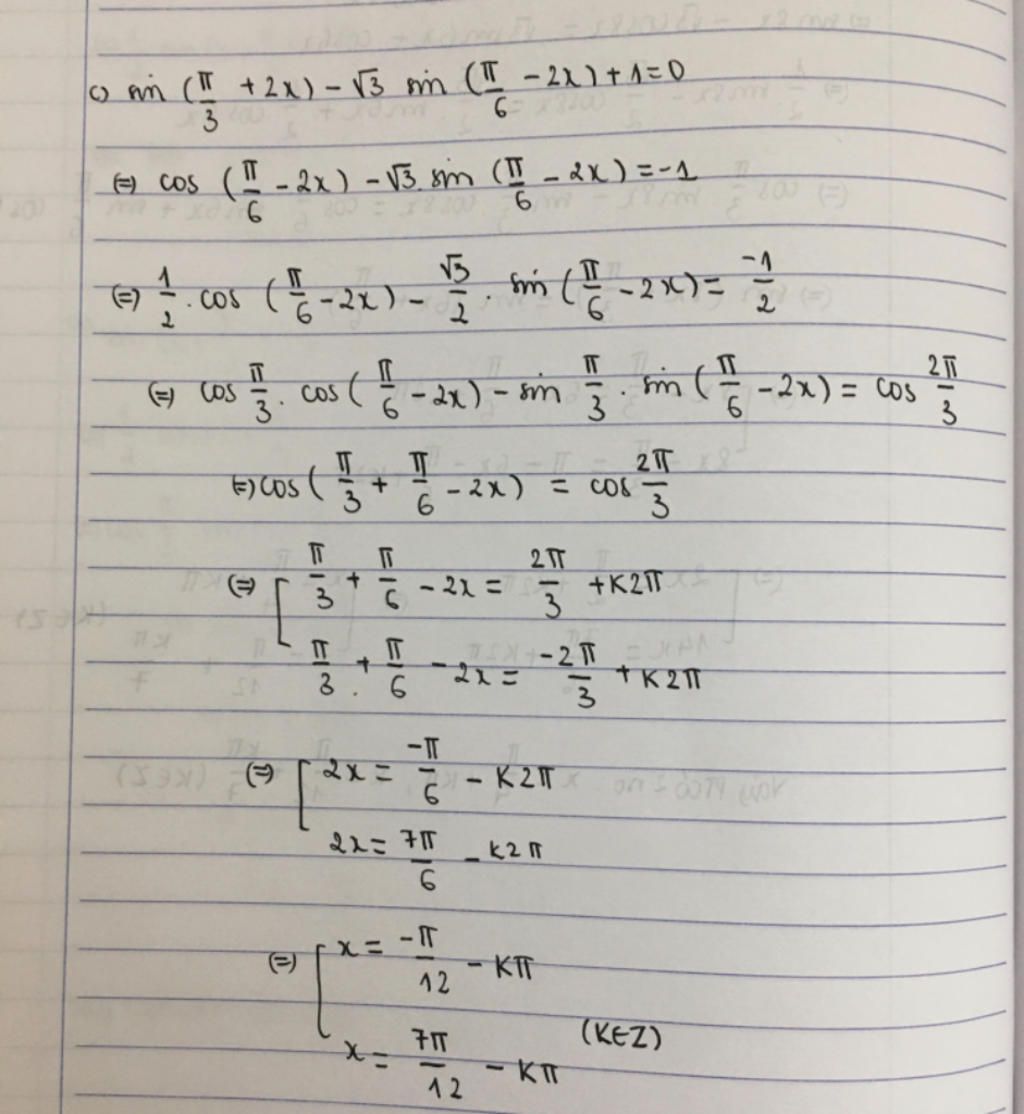 c) sin (π/3 + 2x) - √3 sin (π/6 - 2x) + 1 = 0
(=) cos (π/6 - 2x) - √3. sin (π/6 - 2x) = -1
(=) 1/2 . cos (π/6 - 2x) - √3/2 . sin (π/6 - 2x) = -1/2
(=) cos π/3 . cos (π/6 - 2x) - sin π/3 . sin (π/6 - 2x) = cos 2π/3
(=) cos (π/3 + π/6 - 2x) = cos 2π/3
(=) [ π/3 + π/6 - 2x = 2π/3 + K2π
π/3 + π/6 - 2x = -2π/3 + K2π
(=) [ 2x = -π/6 - K2π
2x = 7π/6 - K2π
(=) [ x = -π/12 - Kπ
(K∈Z)
x = 7π/12 - Kπ